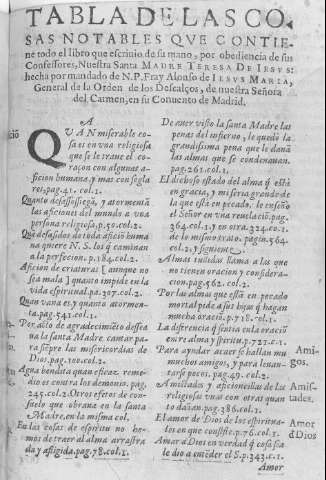 TABLA DE LAS CO-
SAS NOTABLES QVE CONTIE-
ne todo el libro que escriuio de su mano, por obediencia de sus
Confessores, Nuestra Santa MADRE TERESA DE IESVS:
hecha por mandado de N.P. Fray Alonso de IESVS MARIA,
General de la Orden de los Descalços, de nuestra Señora
del Carmen, en su Conuento de Madrid.
A
QVAN miserable co
sa es en vna religiosa
que se le traue el co
raçon con algunas a-
ficion humana, y mas con segla
res, pag. 41. col. 1.
Quanto desassossiega, y atormẽta
las aficiones del mundo a vna
persona religiosa, p. 50. col. 2.
Que desasidos de toda afició huma
na quiere N. S. los q̃ caminan
a la perfecion. p. 184. col. 2.
Aficion de criaturas (aunque no
sea mala) quanto impide en la
vida espiritual. pa. 307. col. 2.
Quan vana es, y quanto atormen-
ta. pag. 541. col. 1.
Por acto de agradecimiẽto dessea
ua la santa Madre cantar pa-
ra siẽpre las misericordias de
Dios. pag. 100. col. 2.
Agua bendita quan eficaz reme-
dio es contra los demonio. pag.
245. col. 2. Otros efetos de con-
suelo que obraua en la santa
Madre, en la misma col.
En las cosas de espiritu no he-
mos de traer al alma arrastra
da y afligida. pag. 78. col. 1.
De auer visto la santa Madre las
penas del infierno, le quedó la
grandissima pena que le dauã
las almas que se condenauan.
pag. 261. col. 1.
El dichoso estado del alma q̃ està
en gracia, y miseria grande de
la que està en pecado, le enseño
el Señor en vna reuelació. pag.
364. col. 1. y en otra 324. co. 1.
de lo mismo trato. pagin. 564.
col. 2. y siguiente.
Almas tullidas llama a las que
no tienen oracion y considera-
cion. pag. 562. col. 2.
Por las almas que està en pecado
mortal pide a sus hijas q̃ hagan
mucha oració. p. 718. col. 1.
La diferencia q̃ sentia en la oració
entre alma y spiritu. p. 727. c. 1.
Para ayudar a caer se hallan mu
chos amigos, y para leuan-
tarse pocos. pag. 49. col. 2.
Amistades y aficioncillas de las
religiosas vnas con otras quan
to dañan. pag. 386. col. 1.
El amor de Dios de los espiritua-
les en que consiste. p. 76. col. 1.
Amar a Dios en verdad q̃ cosa sea
le dio a entẽder el S. p. 343. c. 1.
Ami-
gos.
Amis-
tades.
Amor
d Dios
Amor